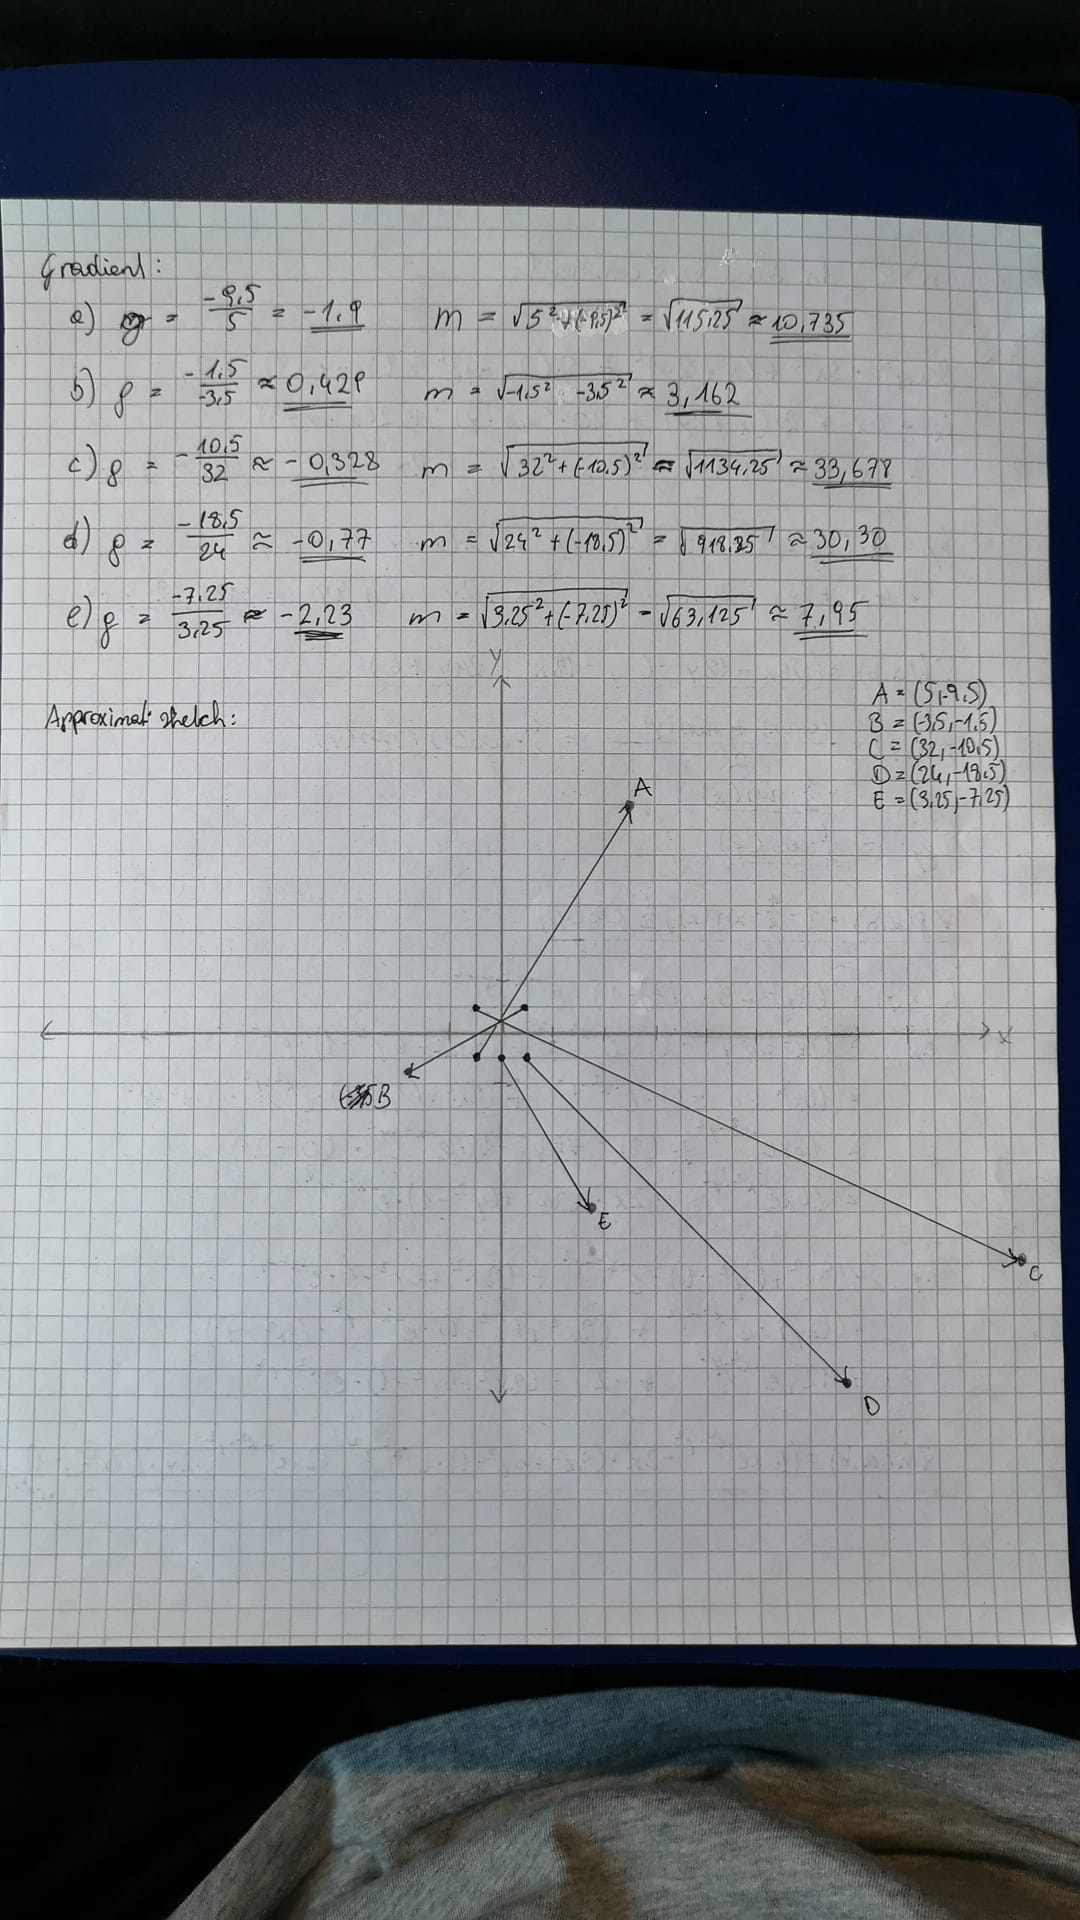 Gradient:
a) g = -9,5/5 = -1,9 m = √(5² + (-9,5)²) = √115,25 ≈ 10,735
b) g = -1,5/-3,5 ≈ 0,429 m = √(-1,5² -3,5²) ≈ 3,162
c) g = -10,5/32 ≈ -0,328 m = √(32² + (-10,5)²) ≈ √1134,25 ≈ 33,678
d) g = -18,5/24 ≈ -0,77 m = √(24² + (-18,5)²) = √918,25 ≈ 30,30
e) g = -7,25/3,25 ≈ -2,23 m = √(3,25² + (-7,25)²) = √63,125 ≈ 7,95
Y
Approximat sketch:
A = (5,-9,5)
B = (-3,5,-1,5)
C = (32,-10,5)
D = (24,-18,5)
E = (3,25,-7,25)
A
X
B
E
C
D